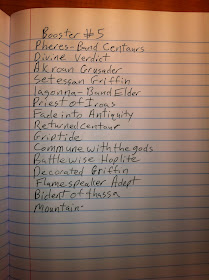 Booster #5
Pheres-Band Centaurs
Divine Verdict
Akroan Crusader
Setessan Griffin
lagonna-Band Elder
Priest of Iroas
Fade into Antiquity
Returned centaur
Griptide
Commune with the gods
Battlewise Hoplite
Decorated Griffin
Flamespeaker Adept
Bident of thassa
Mountain-